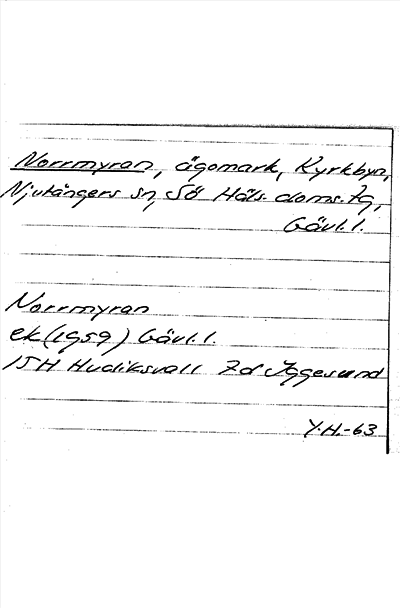 Norrmyran, ägomark, Kyrkbyn,
Njutångers sn, Sö Häls. doms.tg,
Gävl.l.
Norrmyran
ek (1959) Gävl.l.
15H Hudiksvall 7d Iggesund
Y.H.-63